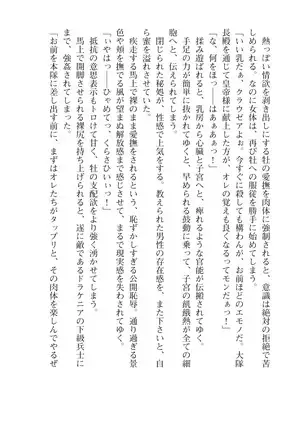 熱っぽい情欲を剥き出しにする牡の愛撫を肉体に強制されると、意識は絶対の拒絶で苦
しめられる。なのに女体は、再び牡への服従を勝手に始めてしまう。
「いい乳だぁ、クラウゼアぉ。すぐに殺しても構わんが、お前ほどのエモノだ。大隊
長殿を通じて皇帝様に献上した方が、オレの覚えも良くなるってモンだぁっ！」
「な、何をほっ――はぁぁぁっ！」
揉み遊ばれると、乳房から心臓と子宮へと、痺れるような官能が伝搬されてゆく。
手足の力が簡単に抜かれてゆくと、早められる鼓動に乗って、子宮の飢餓熱が全ての細
胞へと、伝えられてしまう。
閉じられた秘処が、性感で上気をする。教えられた男性の存在感を、また下さいと、自
ら蜜を溢れさせていた。
疾走する馬上で裸のまま愛撫をされるという、恥ずかしすぎる公開恥辱。通り過ぎる景
色や頬を撫でる風が望まぬ解放感まで感じさせて、まるで現実感を失わされてゆく。
「いやはっ――ひゃめてっ、くらさひぃぃっ！」
抵抗の意思表示もトロけて甘く、牡の支配欲をより強く湧かせてしまう。
馬上で開脚させられて裸尻を持ち上げられると、遂に敵であるドラケニアの下級兵士に
まで、強姦されてしまった。
「お前を本隊に差し出す前に、まずはオレたちがタップリと、その肉体を楽しんでやるぜ